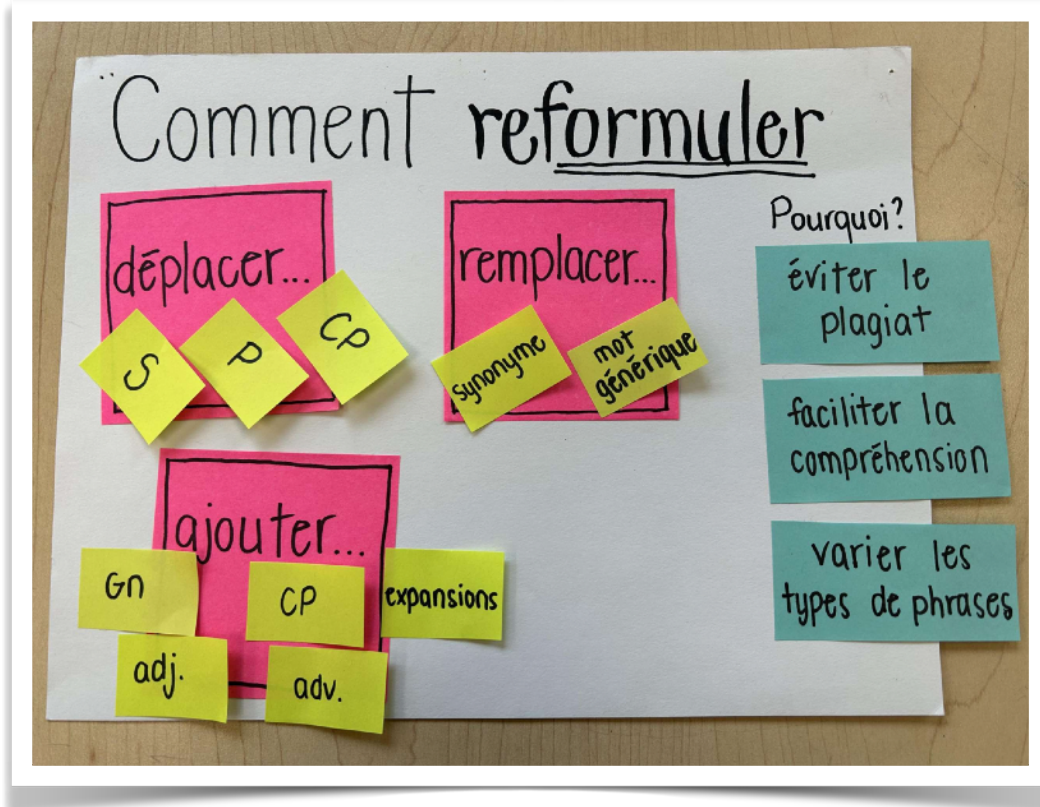 Comment reformuler
déplacer...
S
P
CP
remplacer...
synonyme
mot
générique
ajouter...
Gn
CP
expansions
adj.
adv.
Pourquoi?
éviter le
plagiat
faciliter la
compréhension
varier les
types de phrases